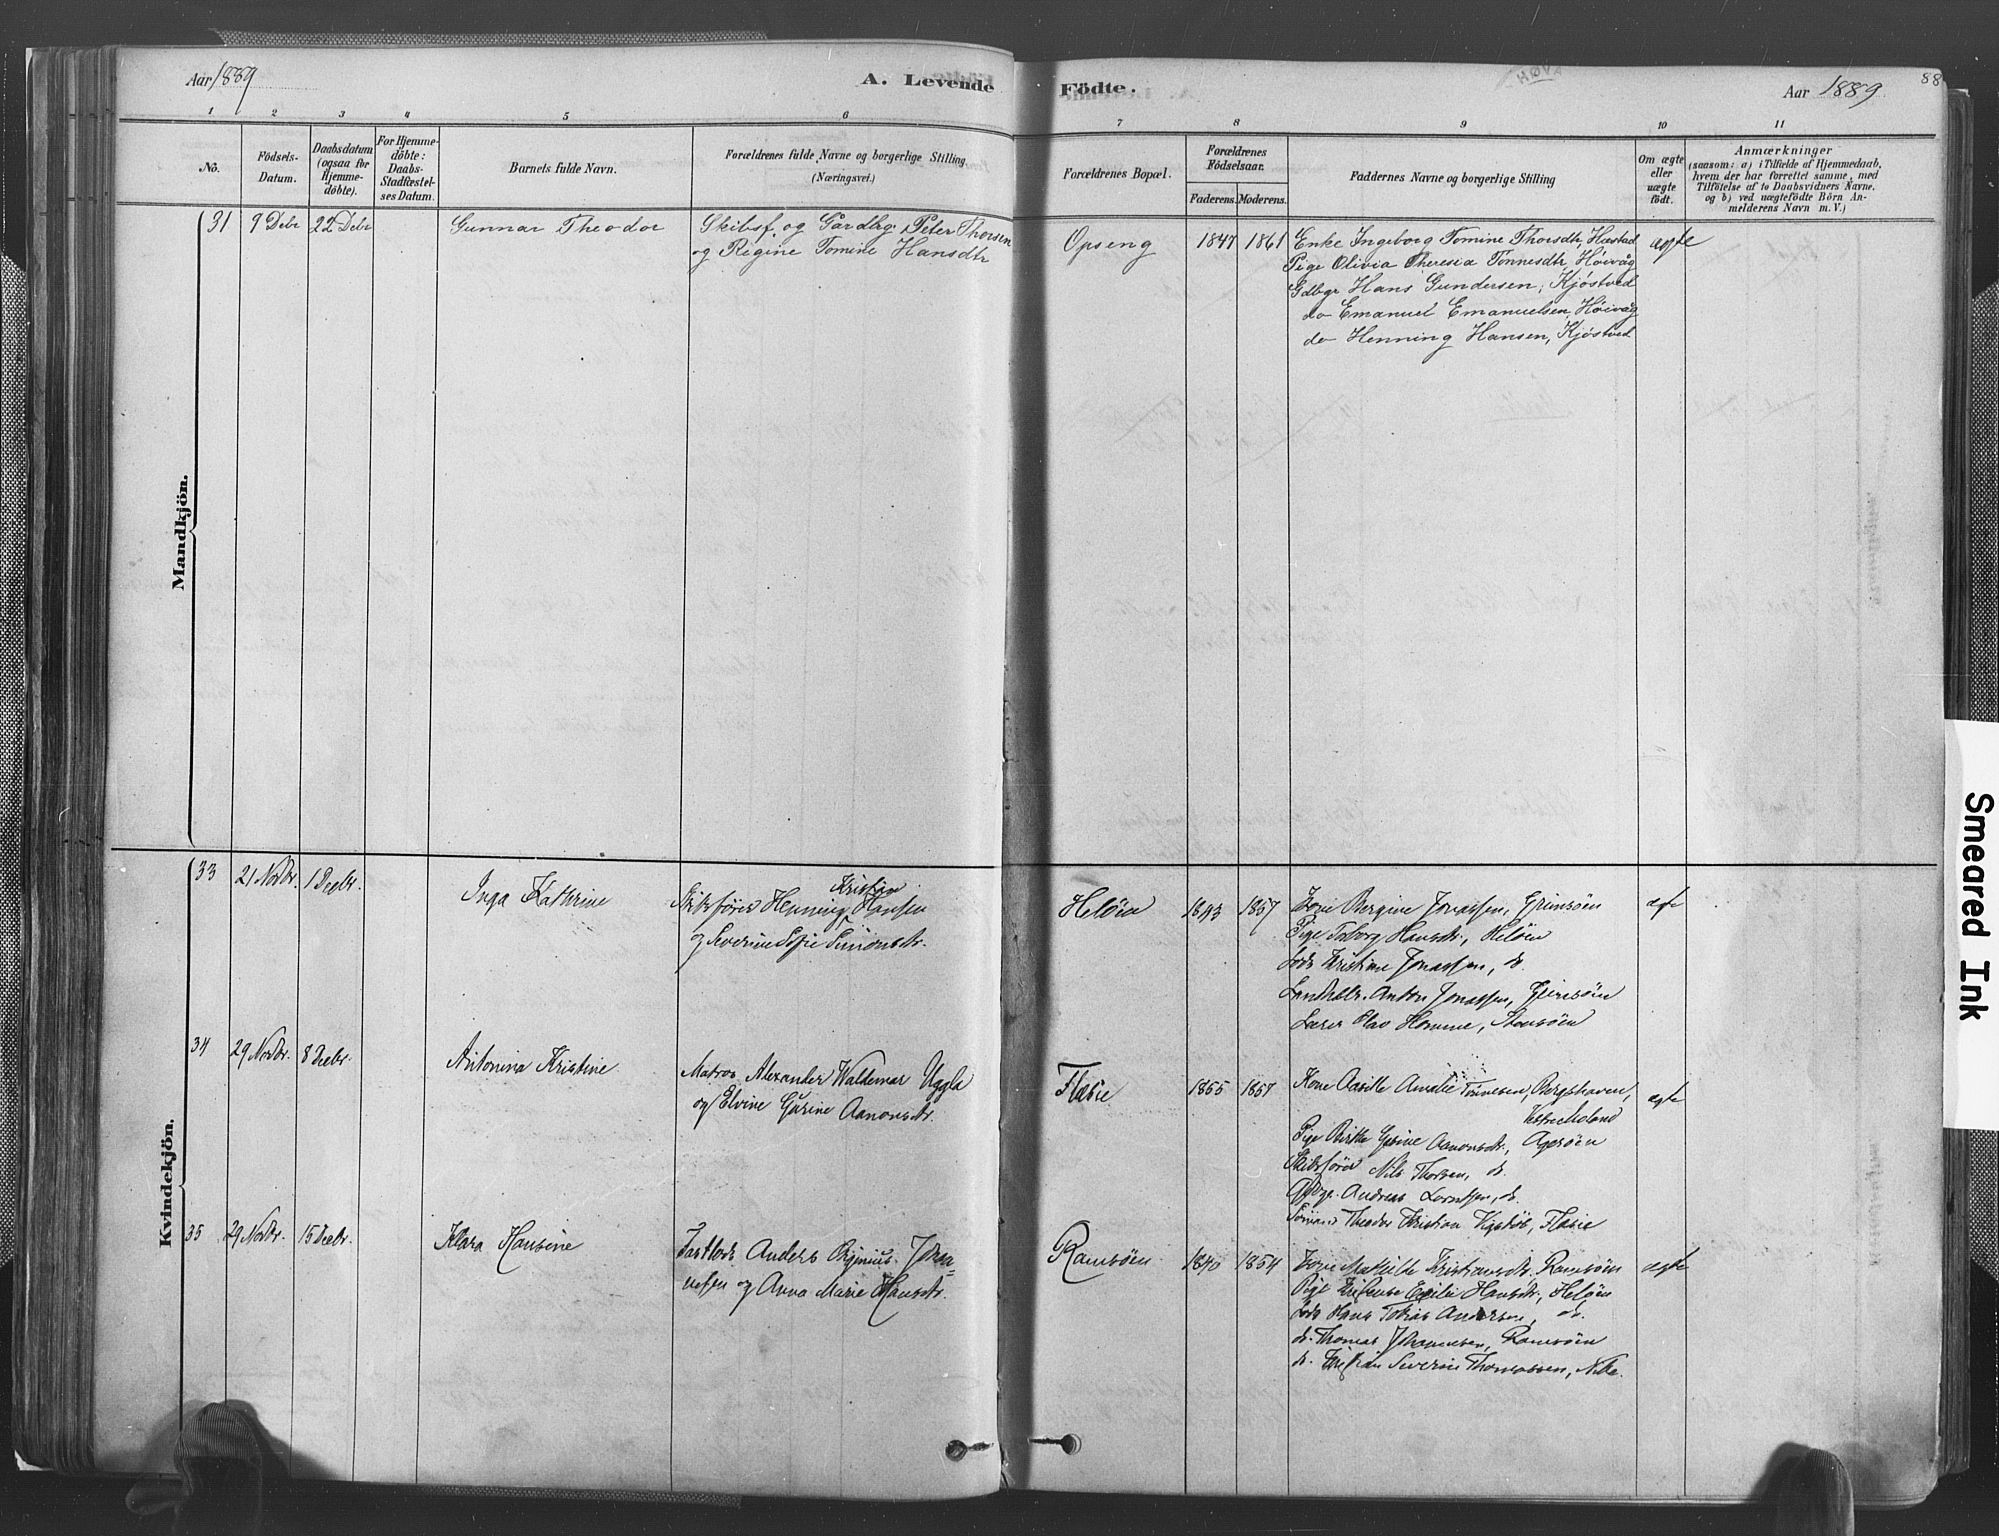 Aar 1889
A. Levende
Födte.
Aar 1889
88
1 2 3 4 5 6 7 8 9 10 11
No.
Födsels-
Datum.
Daabsdatum
(ogsaa for
Hjemme-
döbte).
For Hjemme-
döbte:
Daabs-
Stadfæstel-
ses Datum.
Barnets fulde Navn.
Forældrenes fulde Navne og borgerlige Stilling
(Næringsvei.)
Forældrenes Bopæl.
Forældrenes
Födselsaar.
Faderens. Moderens.
Faddernes Navne og borgerlige Stilling
Om ægte
eller
uægte
födt.
Anmærkninger
(saasom: a) i Tilfælde af Hjemmedaab,
hvem der har forrettet samme, med
Tilföielse af to Daabsvidners Navne,
og b) ved uægtefödte Börn An-
melderens Navn m. V.)
Mandkjön.
31 9 Debr 22 Debr Gunnar Theodor
Skibsf. og Gardbrg. Peter Thorsen
og Regine Tomine Hansdtr
Opseng 1847 1861
Enke Ingeborg Tomine Thorsdtr, Hæstad
Pige Olivia Theresia Tönnesdtr, Höivåg
Gdbgr Hans Gundersen, Kjöstved
do Emanuel Emanuelsen, Höivåg
do Henning Hansen, Kjöstved
ægte
Kvindekjön.
33 21 Novbr. 1 Decbr. Inga Kathrine
Kristian
Skibsförer Henning Hansen
og Severine Sofie Simonsdtr.
Helöen 1843 1857
Kone Bergine Jonassen, Grimsöen
Pige Toborg Hansdtr., Helöen
Lods Kristian Jonassen, do.
Anton Jonassen, Grimsöen
Lærer Olav Homme,
ægte
34 29 Novbr. 8 Decbr. Antonina Kristine
Matros Alexander Waldemar Uggla
og Elvine Gurine Aanonsdtr.
Flasie 1855 1857
Kone Aasille Amalie Tönnesen, Bergshaven,
Vestre Moland
Pige Birthe Gurine Aanonsdtr., Agersöen
Skibsförer Nils Thorsen, do.
Andreas Lorntsen, do.
Sömand Theodor Kristian Vigstöl, Flasie
ægte
35 29 Novbr. 15 Decbr. Klara Hansine
Fastlods Anders Orginius Johan-
nesen og Anna Marie Hansdtr.
Ramsöen 1840 1854
Kone Mathilde Kristiansdtr. Ramsöen
Pige Emilie Hansdtr., Helöen
Lods Hans Tobias Andersen, do.
do. Thomas Johannesen, Ramsöen
do. Kristian Severin Thomassen,
ægte
Smeared Ink